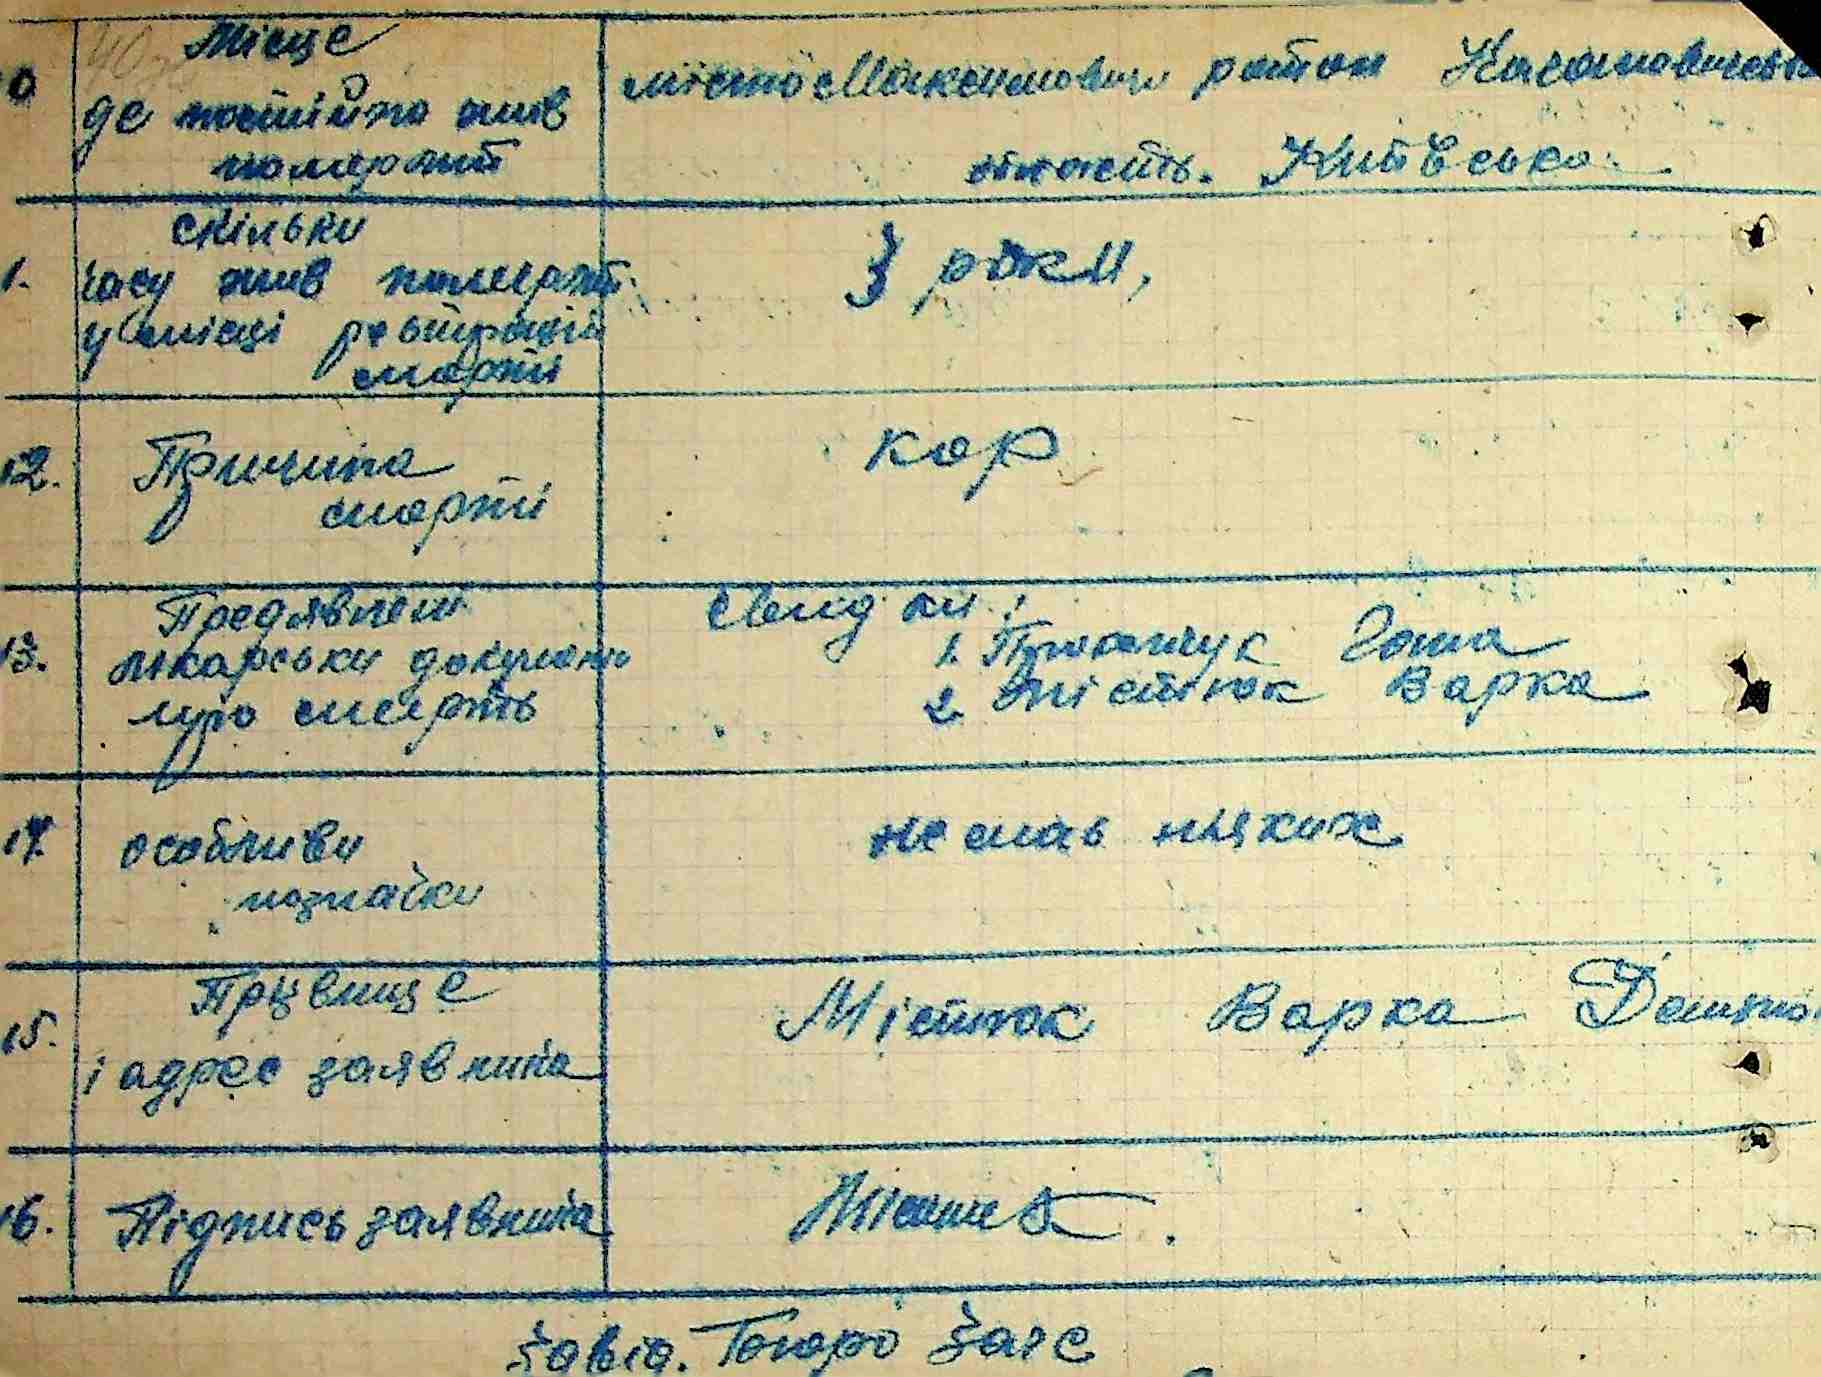 Місце
де постійно жив
померший
місто Максимовичі район Кагановичськ
область. Київська
скільки
1. часу жив померший
у місці рестрації
смерти
3 роки,
12. Причина
смерті
кор
13. Предявлені
лікарськи документи
про смерть
Свидки:
1. Гаша
2. Місткж Варка
14. особливи
познаки
не мав ніяких
15. Прізвище
і адрес заявника
Місткж Варка
16. Підпись заявника
Завід. Бюро Загс